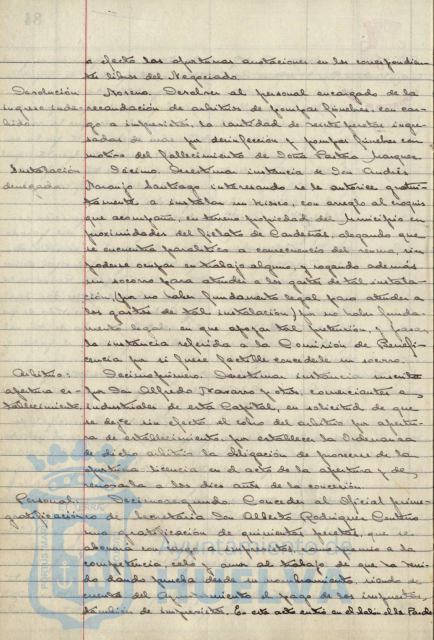 a efecto las oportunas anotaciones en los correspondien-
tes libros del Negociado.
Devolución
ingreso inde-
bido.
Noveno. Devolver al personal encargado de la
recaudación de arbitrios de pompas fúnebres, con car-
go a imprevistos, la cantidad de veinte pesetas ingre-
sadas de más por desinfección y pompas fúnebres con
motivo del fallecimiento de Doña Pastora Marquez.
Instalación
denegada.
Décimo. Desestimar instancia de Don Andrés
Naranjo Santiago interesando se le autorice gratui-
tamente a instalar un kiosco, con arreglo al croquis
que acompaña, en terreno propiedad del Municipio en
proximidades del fielato de Cardeñas, alegando que
se encuentra paralítico a consecuencia del reuma, sin
poderse ocupar en trabajo alguno, y rogando además
un socorro para atender a los gastos de tal instala-
ción, (por no haber fundamento legal para atender a
los gastos de tal instalación) por no haber funda-
mento legal en que apoyar tal pretensión, y pasar
la instancia referida a la Comisión de Benefi-
cencia por si fuese factible concederle un socorro.
Arbitrios:
apertura es-
tablecimiento.
Decimoprimero. Desestimar instancia suscrita
por Don Alfredo Navarro y otros, comerciantes e
industriales de esta Capital, en solicitud de que
se deje sin efecto el cobro del arbitrio por apertu-
ra de establecimiento, por establecer la Ordenanza
de dicho arbitrio la obligación de proveerse de la
oportuna licencia en el acto de la apertura y de
renovarla a los diez años de la concesión.
Personal:
gratificación
Decimosegundo. Conceder al Oficial prime-
ro de Secretaría Don Alberto Rodriguez Centeno
una gratificación de quinientas pesetas, que se
abonará con cargo a imprevistos, en premio a la
competencia, celo y amor al trabajo de que ha veni-
do dando prueba desde su nombramiento, siendo de
cuenta del Ayuntamiento el pago de los impuestos,
también de imprevistos. En este acto entra en el Salón el Sr.